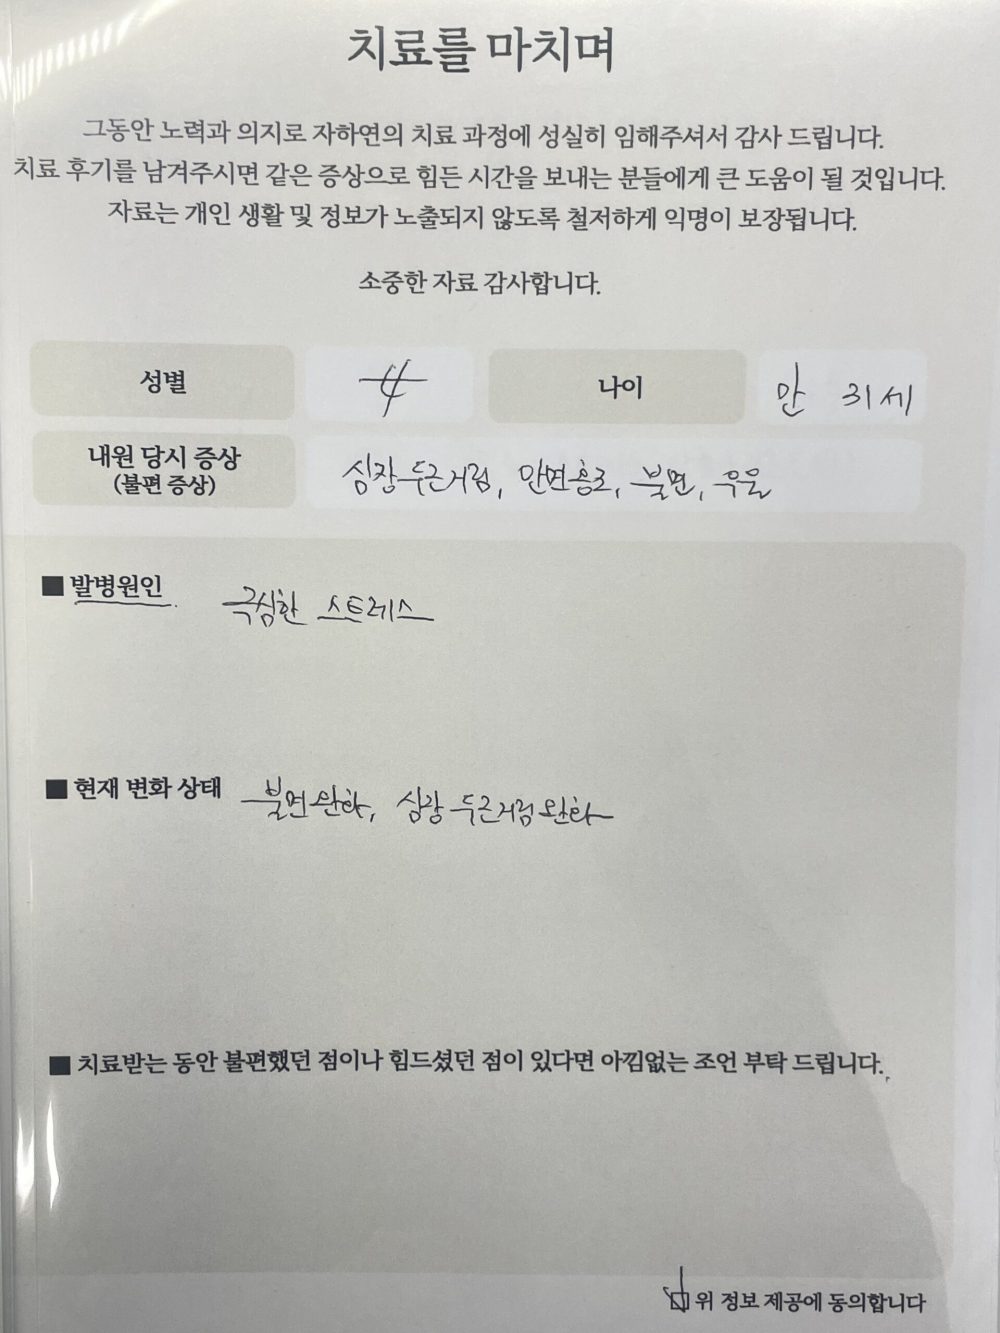 치료를 마치며
그동안 노력과 의지로 자하연의 치료 과정에 성실히 임해주셔서 감사 드립니다.
치료 후기를 남겨주시면 같은 증상으로 힘든 시간을 보내는 분들에게 큰 도움이 될 것입니다.
자료는 개인 생활 및 정보가 노출되지 않도록 철저하게 익명이 보장됩니다.
소중한 자료 감사합니다.
성별 女 나이 만 31세
내원 당시 증상
(불편 증상) 심장두근거림, 안면홍조, 불면, 우울
■ 발병원인 극심한 스트레스
■ 현재 변화 상태 불면완화, 심장 두근거림 완화
■ 치료받는 동안 불편했던 점이나 힘드셨던 점이 있다면 아낌없는 조언 부탁 드립니다.
위 정보 제공에 동의합니다